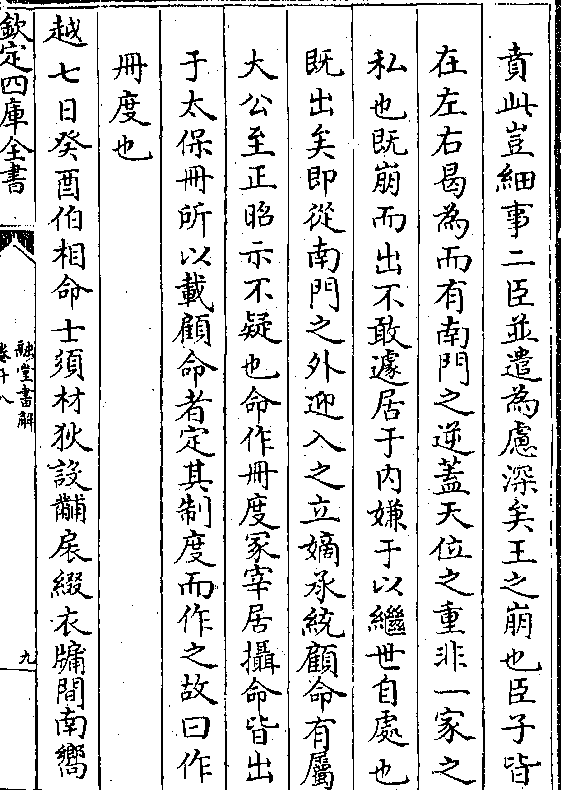 賁此豈細事二臣並遣為慮深矣王之崩也臣子皆
在左右曷為而有南門之逆蓋天位之重非一家之
私也既崩而出不敢遽居于内嫌于以繼世自處也
既出矣即從南門之外迎入之立嫡承統顧命有屬
大公至正昭示不疑也命作冊度冢宰居攝命皆出
于太保冊所以載顧命者定其制度而作之故曰作
冊度也
越七日癸酉伯相命士須材狄設黼扆綴衣牖間南嚮
欽定四庫全書
融堂書解
卷十八
九